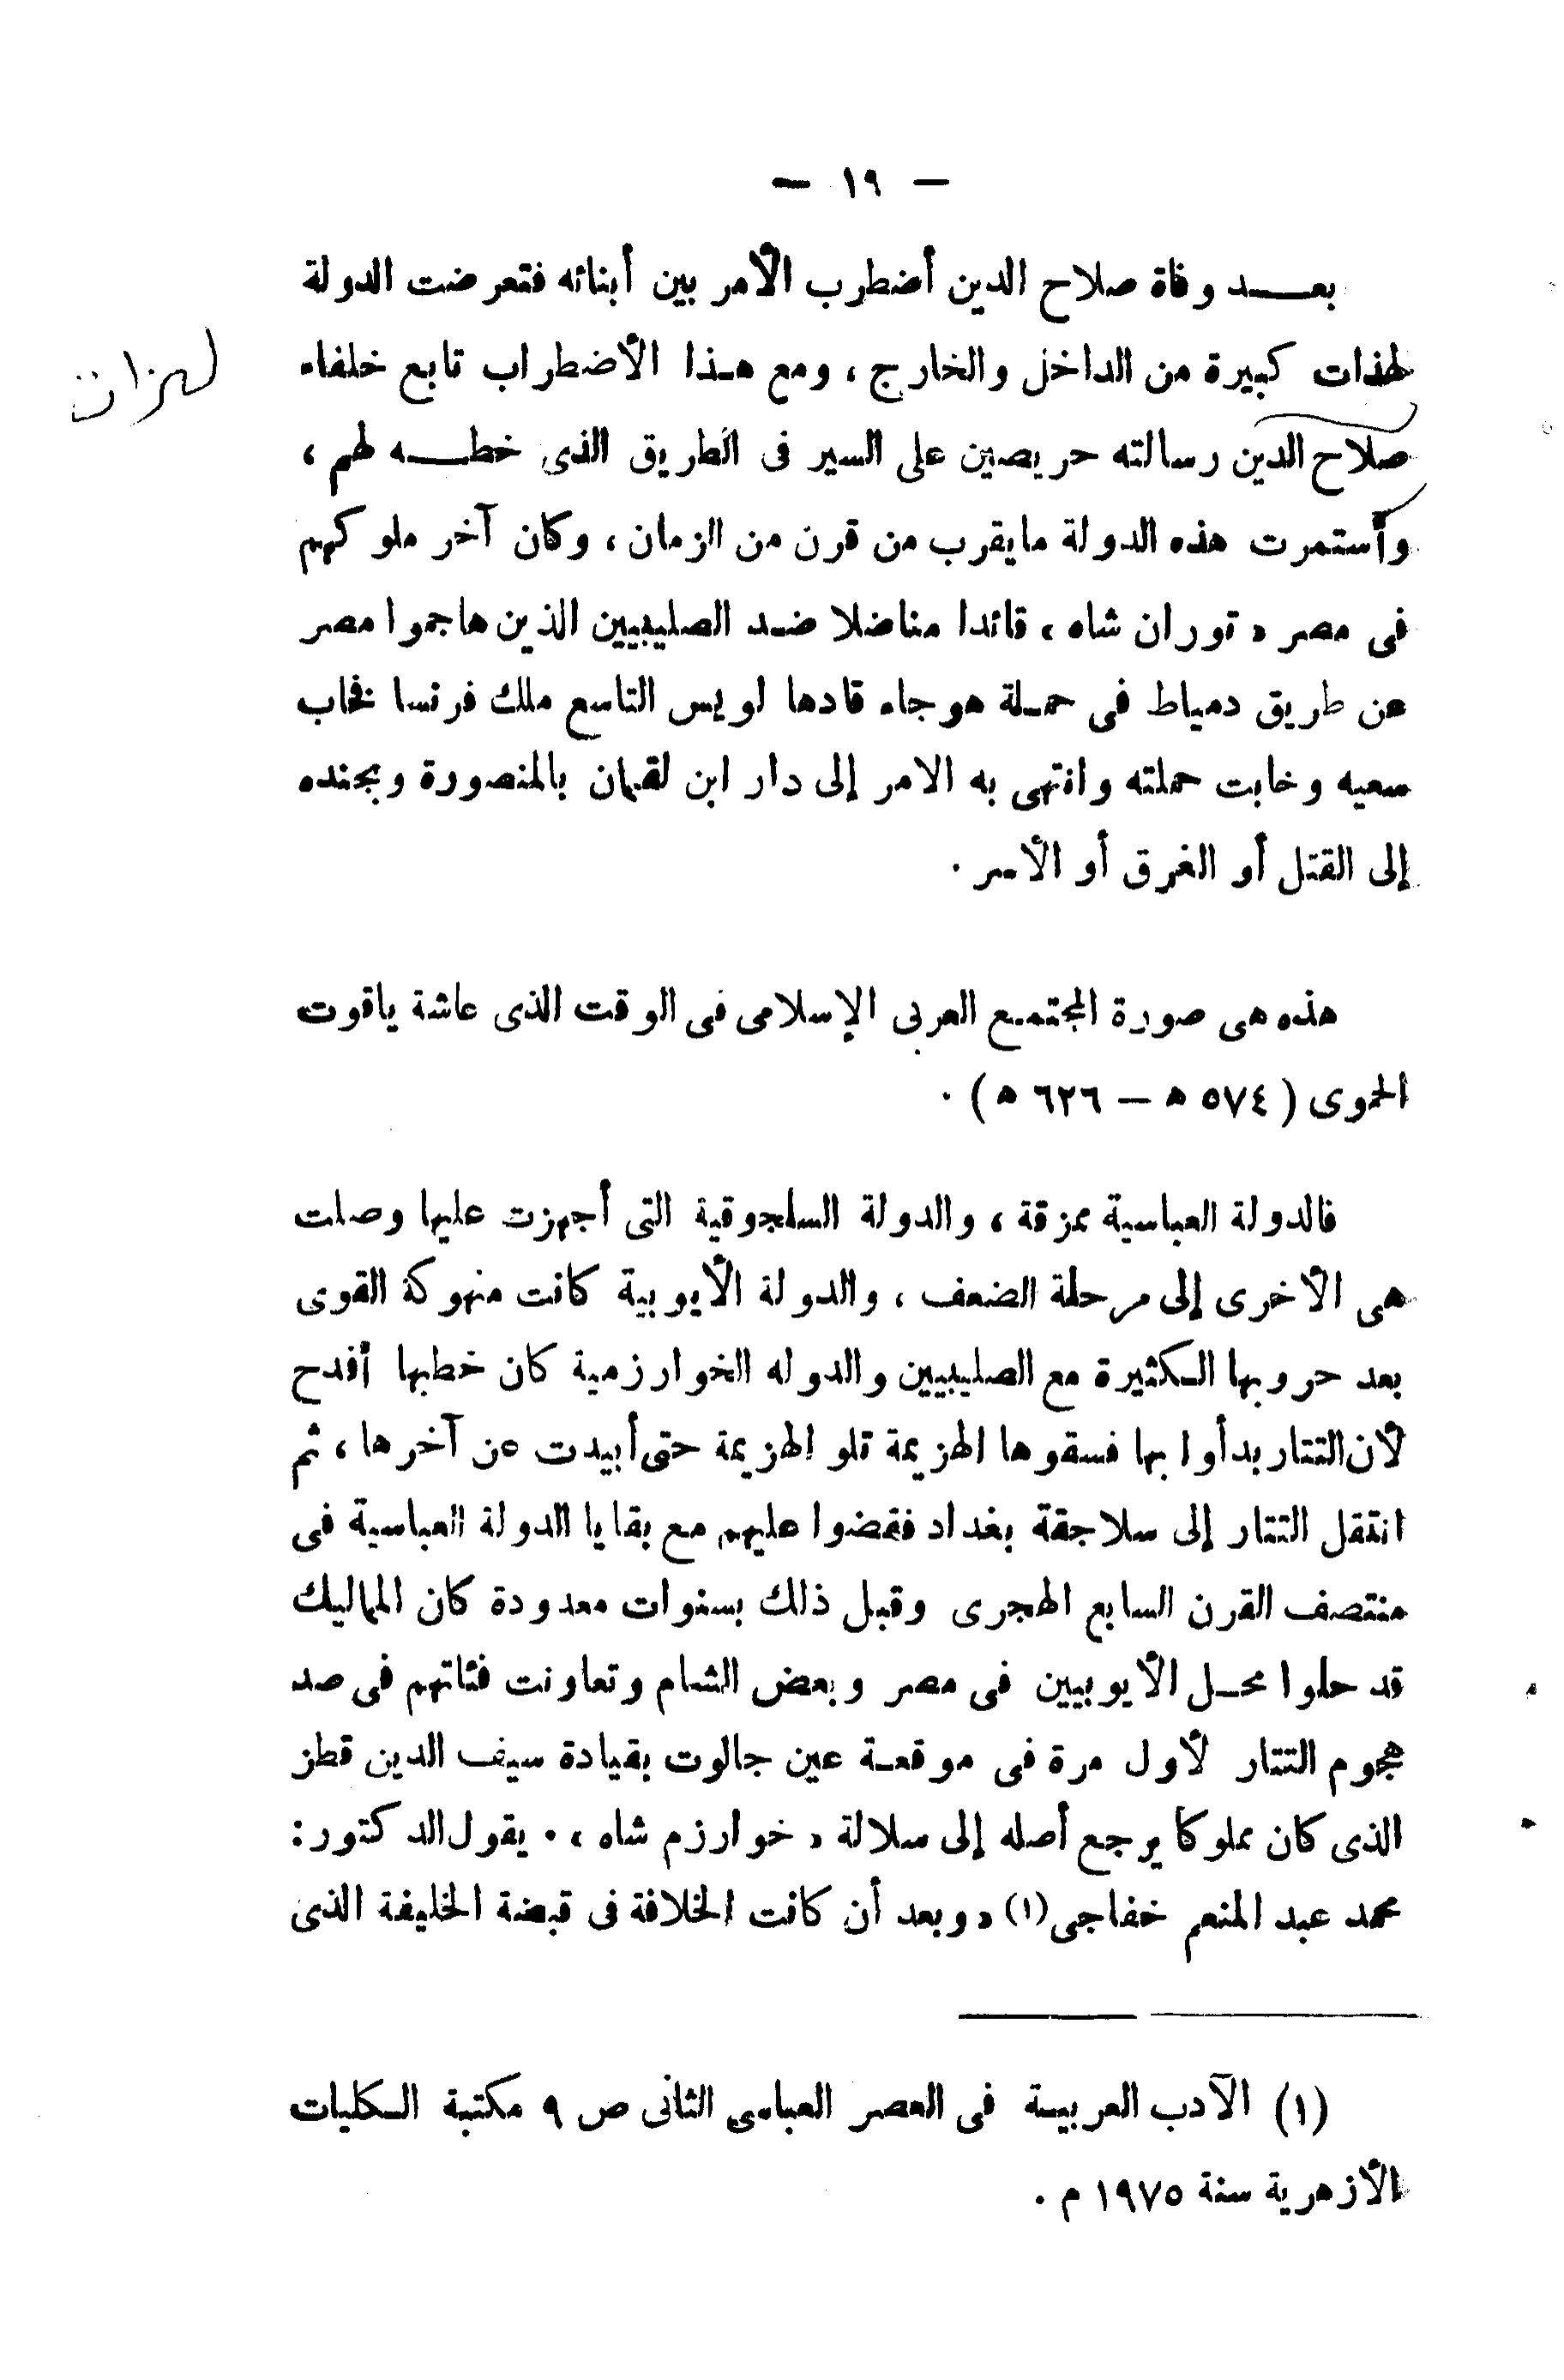 — ١٩ —
بعـــد وفاة صلاح الدين أضطرب الأمر بين أبنائه فتعرضت الدولة
لهذات كبيرة من الداخل والخارج ، ومع هـذا الأضطراب تابع خلفاء
لهزات
صلاح الدين رسالته حريصين على السير فى الطريق الذى خطــه لهم ،
وأستمرت هذه الدولة مايقرب من قرن من الزمان ، وكان آخر ملوكهم
فى مصر « توران شاه ، قائدا مناضلا ضـد الصليبيين الذين هاجموا مصر
عن طريق دمياط فى حمـلة هوجاء قادها لويس التاسع ملك فرنسا فخاب
سعيه وخابت حملته وانتهى به الامر إلى دار ابن لقمان بالمنصورة وبجنده
إلى القتل أو الغرق أو الأسر .
هذه هى صورة المجتمـع العربى الإسلامى فى الوقت الذى عاشة ياقوت
الحموى ( ٥٧٤ ه — ٦٢٦ ه ) .
فالدولة العباسية ممزقة ، والدولة السلجوقية التى أجهزت عليها وصلت
هى الأخرى إلى مرحلة الضعف ، والدولة الأيوبية كانت منهوكة القوى
بعد حروبها الـكثيرة مع الصليبيين والدوله الخوارزمية كان خطبها أفدح
لأن التتار بدأوا بها فسقوها الهزيمة تلو الهزيمة حتى أبيدت عن آخرها ، ثم
انتقل التتار إلى سلاجقة بغداد فقضوا عليهم مع بقايا الدولة العباسية فى
منتصف القرن السابع الهجرى وقبل ذلك بسنوات معدودة كان المماليك
قد حلوا محـل الأيوبيين فى مصر وبعض الشام وتعاونت فئاتهم فى صد
هجوم التتار لأول مرة فى موقعـة عين جالوت بقيادة سيف الدين قطز
الذى كان مملوكا يرجع أصله إلى سلالة « خوارزم شاه ، . يقول الدكتور :
محمد عبد المنعم خفاجى (١) « وبعد أن كانت الخلافة فى قبضة الخليفة الذى
(١) الآدب العربيـة فى العصر العباسى الثانى ص ٩ مكتبة الـكليات
الأزهرية سنة ١٩٧٥ م .